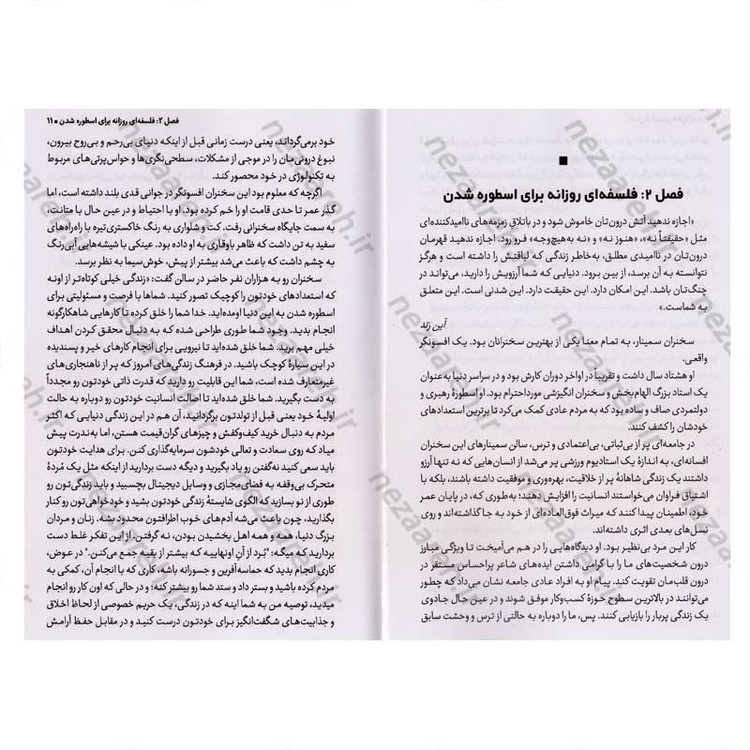 فصل ۲: فلسفه‌ای روزانه برای اسطوره شدن
«اجازه ندهید آتش درون‌تان خاموش شود و در باتلاقِ زمزمه‌های ناامیدکننده‌ای
مثل «حقیقتاً نه»، «هنوز نه» و «نه به‌هیچ‌وجه» فرو رود. اجازه ندهید قهرمان
درون‌تان در ناامیدی مطلق، به‌خاطر زندگی که لیاقتش را داشته است و هرگز
نتوانسته به آن برسد، از بین برود. دنیایی که شما آرزویش را دارید، می‌تواند در
چنگ‌تان باشد. این امکان دارد. این حقیقت دارد. این شدنی است. این متعلق
به شماست.»
آین رند
سخنران سمینار، به تمام معنا یکی از بهترین سخنرانان بود. یک افسونگر
واقعی.
او هشتاد سال داشت و تقریباً در اواخر دوران کارش بود و در سراسر دنیا به‌عنوان
یک استاد بزرگ الهام‌بخش و سخنران انگیزشی مورداحترام بود. او اسطورهٔ رهبری و
دولتمردی صاف و ساده بود که به مردم عادی کمک می‌کرد تا برترین استعدادهای
خودشان را کشف کنند.
در جامعه‌ای پر از بی‌ثباتی، بی‌اعتمادی و ترس، سالن سمینارهای این سخنران
افسانه‌ای، به اندازهٔ یک استادیوم ورزشی پر می‌شد از انسان‌هایی که نه تنها آرزو
داشتند یک زندگی شاهانهٔ پر از خلاقیت، بهره‌وری و موفقیت داشته باشند، بلکه با
اشتیاق فراوان می‌خواستند انسانیت را افزایش دهند؛ به‌طوری که، در پایان عمر
خود، اطمینان پیدا کنند که میراث فوق‌العاده‌ای از خود به جا گذاشته‌اند و روی
نسل‌های بعدی اثری داشته‌اند.
کار این مرد بی‌نظیر بود. او دیدگاه‌هایی را در هم می‌آمیخت تا ویژگی مبارز
درون شخصیت‌های ما را با گرامی داشتن ایده‌های شاعر پراحساس مستقر در
درون قلب‌مان تقویت کند. پیام او به افراد عادی جامعه نشان می‌داد که چطور
می‌توانند در بالاترین سطوح حوزهٔ کسب‌وکار موفق شوند و در عین حال جادوی
یک زندگی پربار را بازیابی کنند. پس، ما را دوباره به حالتی از ترس و وحشت سابق
فصل ۲: فلسفه‌ای روزانه برای اسطوره شدن ■ ۱۱
خود برمی‌گرداند، یعنی درست زمانی قبل از اینکه دنیای بی‌رحم و بی‌روح بیرون،
نبوغ درونی‌مان را در موجی از مشکلات، سطحی‌نگری‌ها و حواس‌پرتی‌های مربوط
به تکنولوژی در خود محصور کند.
اگرچه که معلوم بود این سخنران افسونگر در جوانی قدی بلند داشته است، اما
گذر عمر تا حدی قامت او را خم کرده بود. او با احتیاط و در عین حال با متانت،
به سمت جایگاه سخنرانی رفت. کت و شلواری به رنگ خاکستری‌تیره با راه‌راه‌های
سفید به تن داشت که ظاهر باوقاری به او داده بود. عینکی با شیشه‌هایی آبی‌رنگ
به چشم داشت که باعث می‌شد بیشتر از پیش، خوش‌سیما به نظر برسد.
سخنران رو به هزاران نفر حاضر در سالن گفت: «زندگی خیلی کوتاه‌تر از اونه
که استعدادهای خودتون را کوچیک تصور کنید. شماها با فرصت و مسئولیتی برای
اسطوره شدن به این دنیا اومده‌اید. خدا شما را خلق کرده تا کارهایی شاهکارگونه
انجام بدید. وجود شما طوری طراحی شده که به دنبال محقق کردن اهداف
خیلی مهم برید. شما خلق شده‌اید تا نیرویی برای انجام کارهای خیر و پسندیده
در این سیارهٔ کوچک باشید. در فرهنگ زندگی‌های امروز که پر از ناهنجاری‌های
غیرمتعارف شده است، شما این قابلیت رو دارید که قدرت ذاتی خودتون رو مجدداً
به دست بگیرید. شما خلق شده‌اید تا اصالت انسانیت خودتون رو دوباره به حالت
اولیهٔ خود یعنی قبل از تولدتون برگردانید، آن هم در این زندگی دنیایی که اکثر
مردم به دنبال خرید کیف‌وکفش و چیزهای گران‌قیمت هستن، اما به‌ندرت پیش
میاد که روی سعادت و تعالی خودشون سرمایه‌گذاری کنن. برای هدایت خودتون
باید سعی کنید نه‌گفتن رو یاد بگیرید و دیگه دست بردارید از اینکه مثل یک مُردهٔ
متحرک بی‌وقفه به فضای‌مجازی و وسایل دیجیتال بچسبید و باید زندگی‌تون رو
طوری از نو بسازید که الگوی شایستهٔ زندگی خودتون بشید و خودخواهی‌تون رو کنار
بگذارید، چون باعث می‌شه آدم‌های خوب اطرافتون محدود بشه. زنان و مردان
بزرگ دنیا، همه و همه اهل بخشیدن بودن، نه گرفتن. از این تفکر غلط دست
بردارید که میگه: "بُرد از آن اونهاییه که بیشتر از بقیه جمع می‌کنن." در عوض،
کاری انجام بدید که حماسه‌آفرین و جسورانه باشه؛ کاری که با انجام آن، کمکی به
مردم کرده باشید و بستر داد و ستد شما رو بیشتر کنه؛ و در حالی که اون کار رو انجام
میدید، توصیه من به شما اینه که در زندگی، یک حریم خصوصی از لحاظ اخلاق
و جذابیت‌های شگفت‌انگیز برای خودتون درست کنید و در مقابل حفظ آرامش
nezaareh.ir